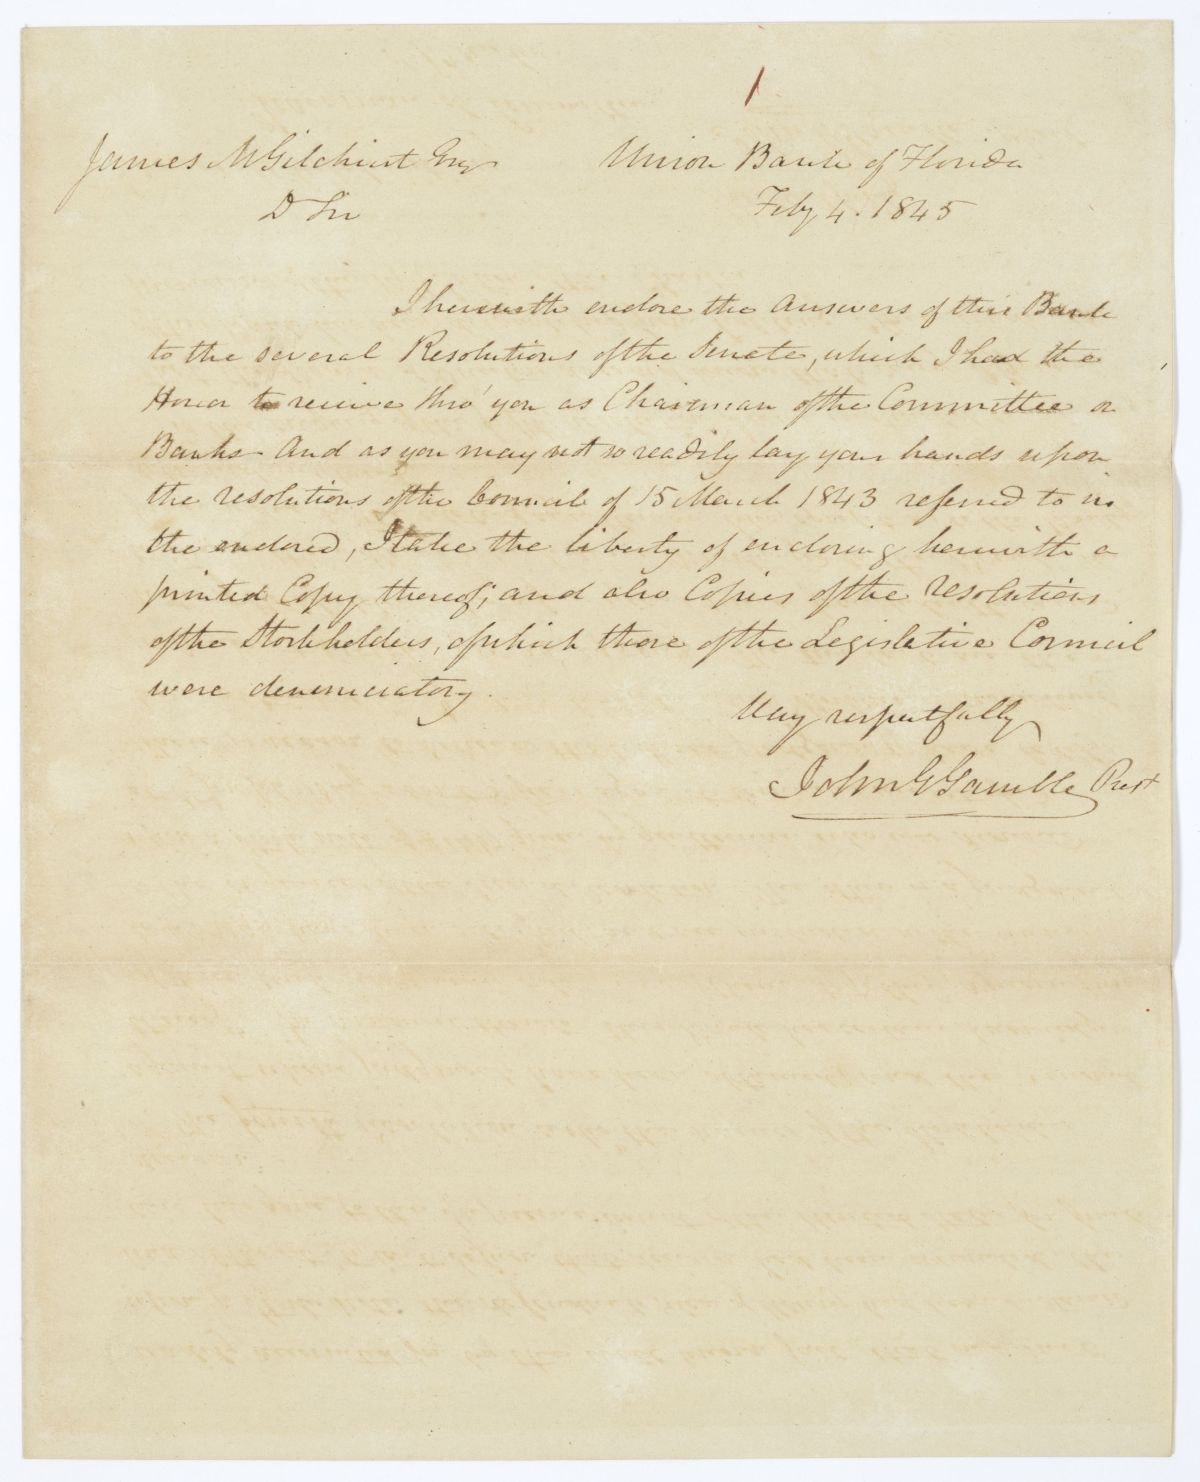 James M Gilchrist Esq
D Sir
Union Bank of Florida
Feby 4. 1845
I herewith enclose the Answers of this Bank
to the several Resolutions of the Senate, which I had the
Honor to receive thro' you as Chairman of the Committee on
Banks - And as you may not so readily lay your hands upon
the resolutions of the Council of 15 March 1843 referred to in
the enclosed, I take the liberty of enclosing herewith a
printed Copy thereof; and also Copies of the resolutions
of the Stockholders, of which those of the Legislative Council
were denunciatory.
Very respectfully
John G Gamble Prest